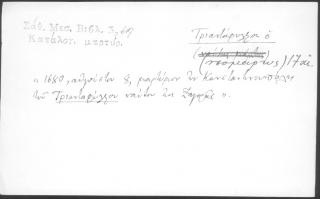 Σάθ. Μεσ. Βιβλ. 3, 609
Κατάλογ. μαρτύρ.
Τριαντάφυλλος ὁ
(νεομάρτυς) 17 αἰ.
« 1680, αὐγούστου 8, μαρτύριον ἐν Κωνσταντινουπόλει
τοῦ Τριανταφύλλου ναύτου ἐκ Ζαγορᾶς ».